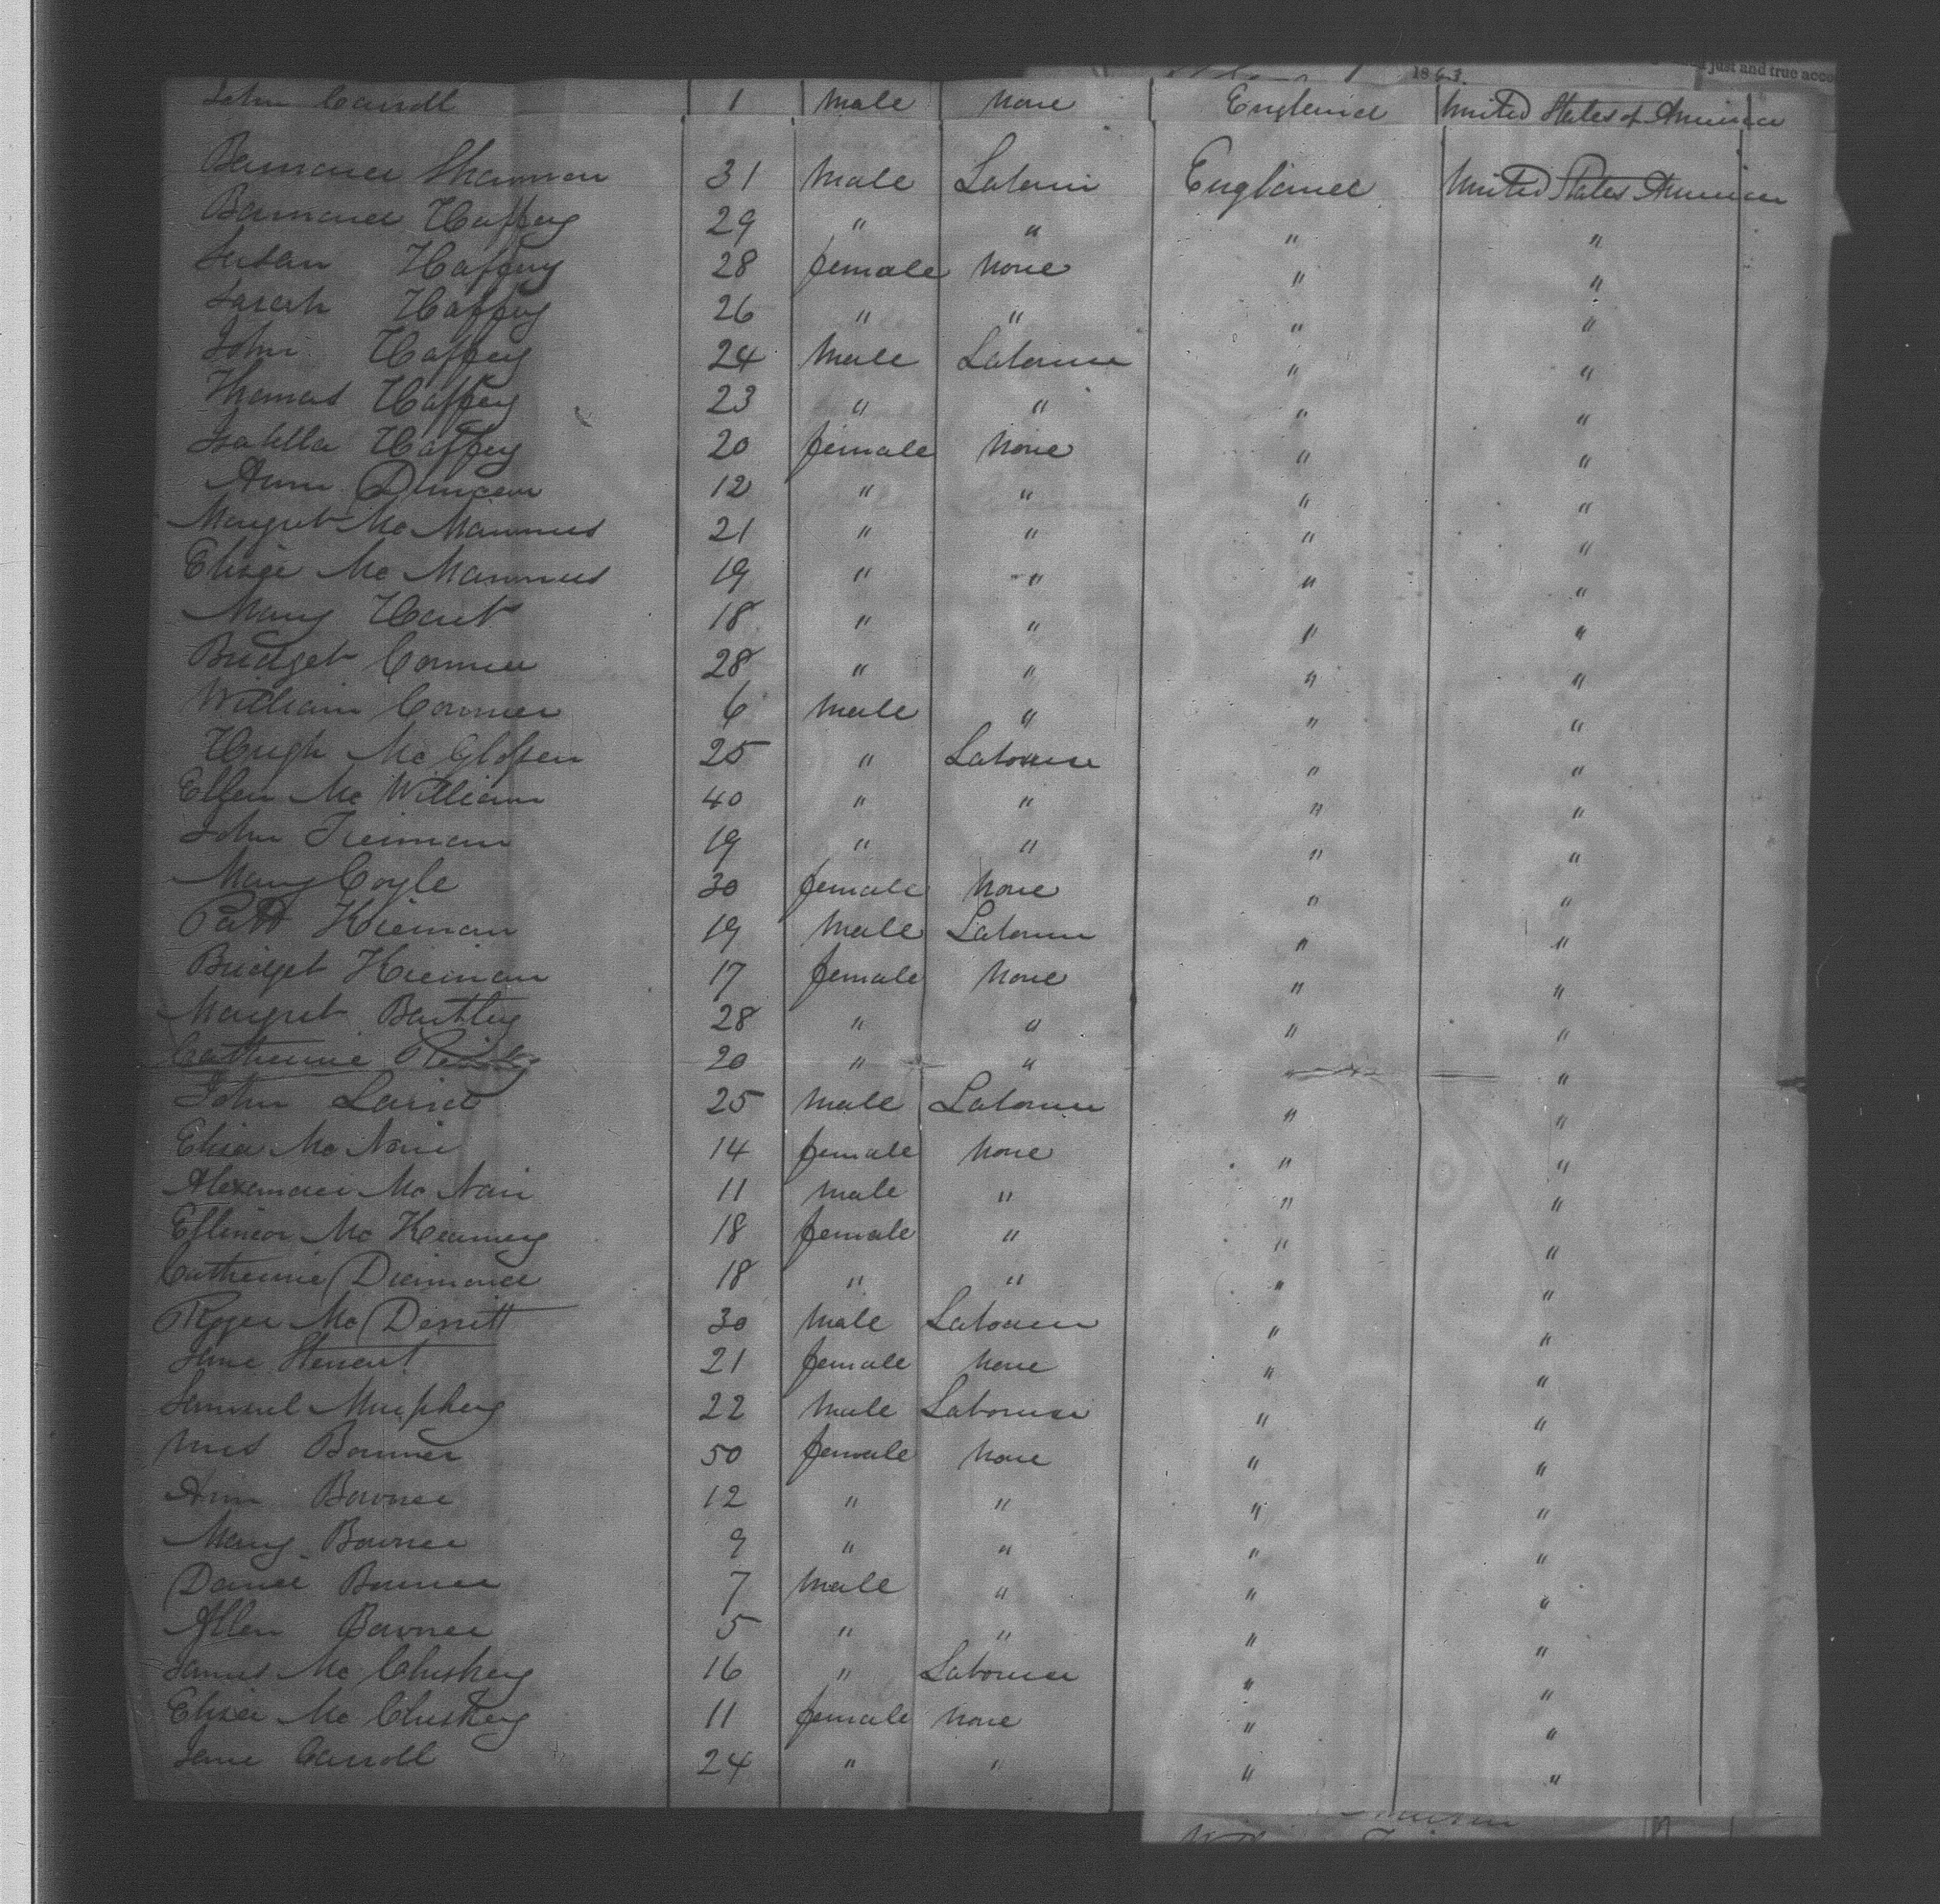 1863.
just and true acco
John Carroll 1 Male None England United States of America
Bernard Shannon 31 Male Laborer England United States America
Bernard Haffey 29 " " " "
Susan Haffey 28 female None " "
Sarah Haffey 26 " " " "
John Haffey 24 Male Laborer " "
Thomas Haffey 23 " " " "
Isabella Haffey 20 female None " "
Ann Duncan 12 " " " "
Margret McMannus 21 " " " "
Elisa McMannus 19 " " " "
Mary Hart 18 " " " "
Bridget Conner 28 " " " "
William Conner 6 Male " " "
Hugh McGlossen 25 " Laborer " "
Ellen McWilliam 40 " " " "
John Tiernan 19 " " " "
Mary Coyle 30 female None " "
Patt Kiernan 19 Male Laborer " "
Bridget Kiernan 17 female None " "
Margret Bartley 28 " " " "
Catherine Reily 20 " " " "
John Laird 25 Male Laborer " "
Elisa McNair 14 female None " "
Alexander McNair 11 Male " " "
Ellinor McKearney 18 female " " "
Catherine Diamond 18 " " " "
Roger McDerritt 30 Male Laborer " "
Jane Stewart 21 female None " "
Samuel Murphey 22 Male Laborer " "
Mrs Bonner 50 female None " "
Ann Bonner 12 " " " "
Mary Bonner 9 " " " "
Daniel Bonner 7 Male " " "
Allen Bonner 5 " " " "
James McCluskey 16 " Laborer " "
Elisa McCluskey 11 female None " "
Jane Carroll 24 " " " "